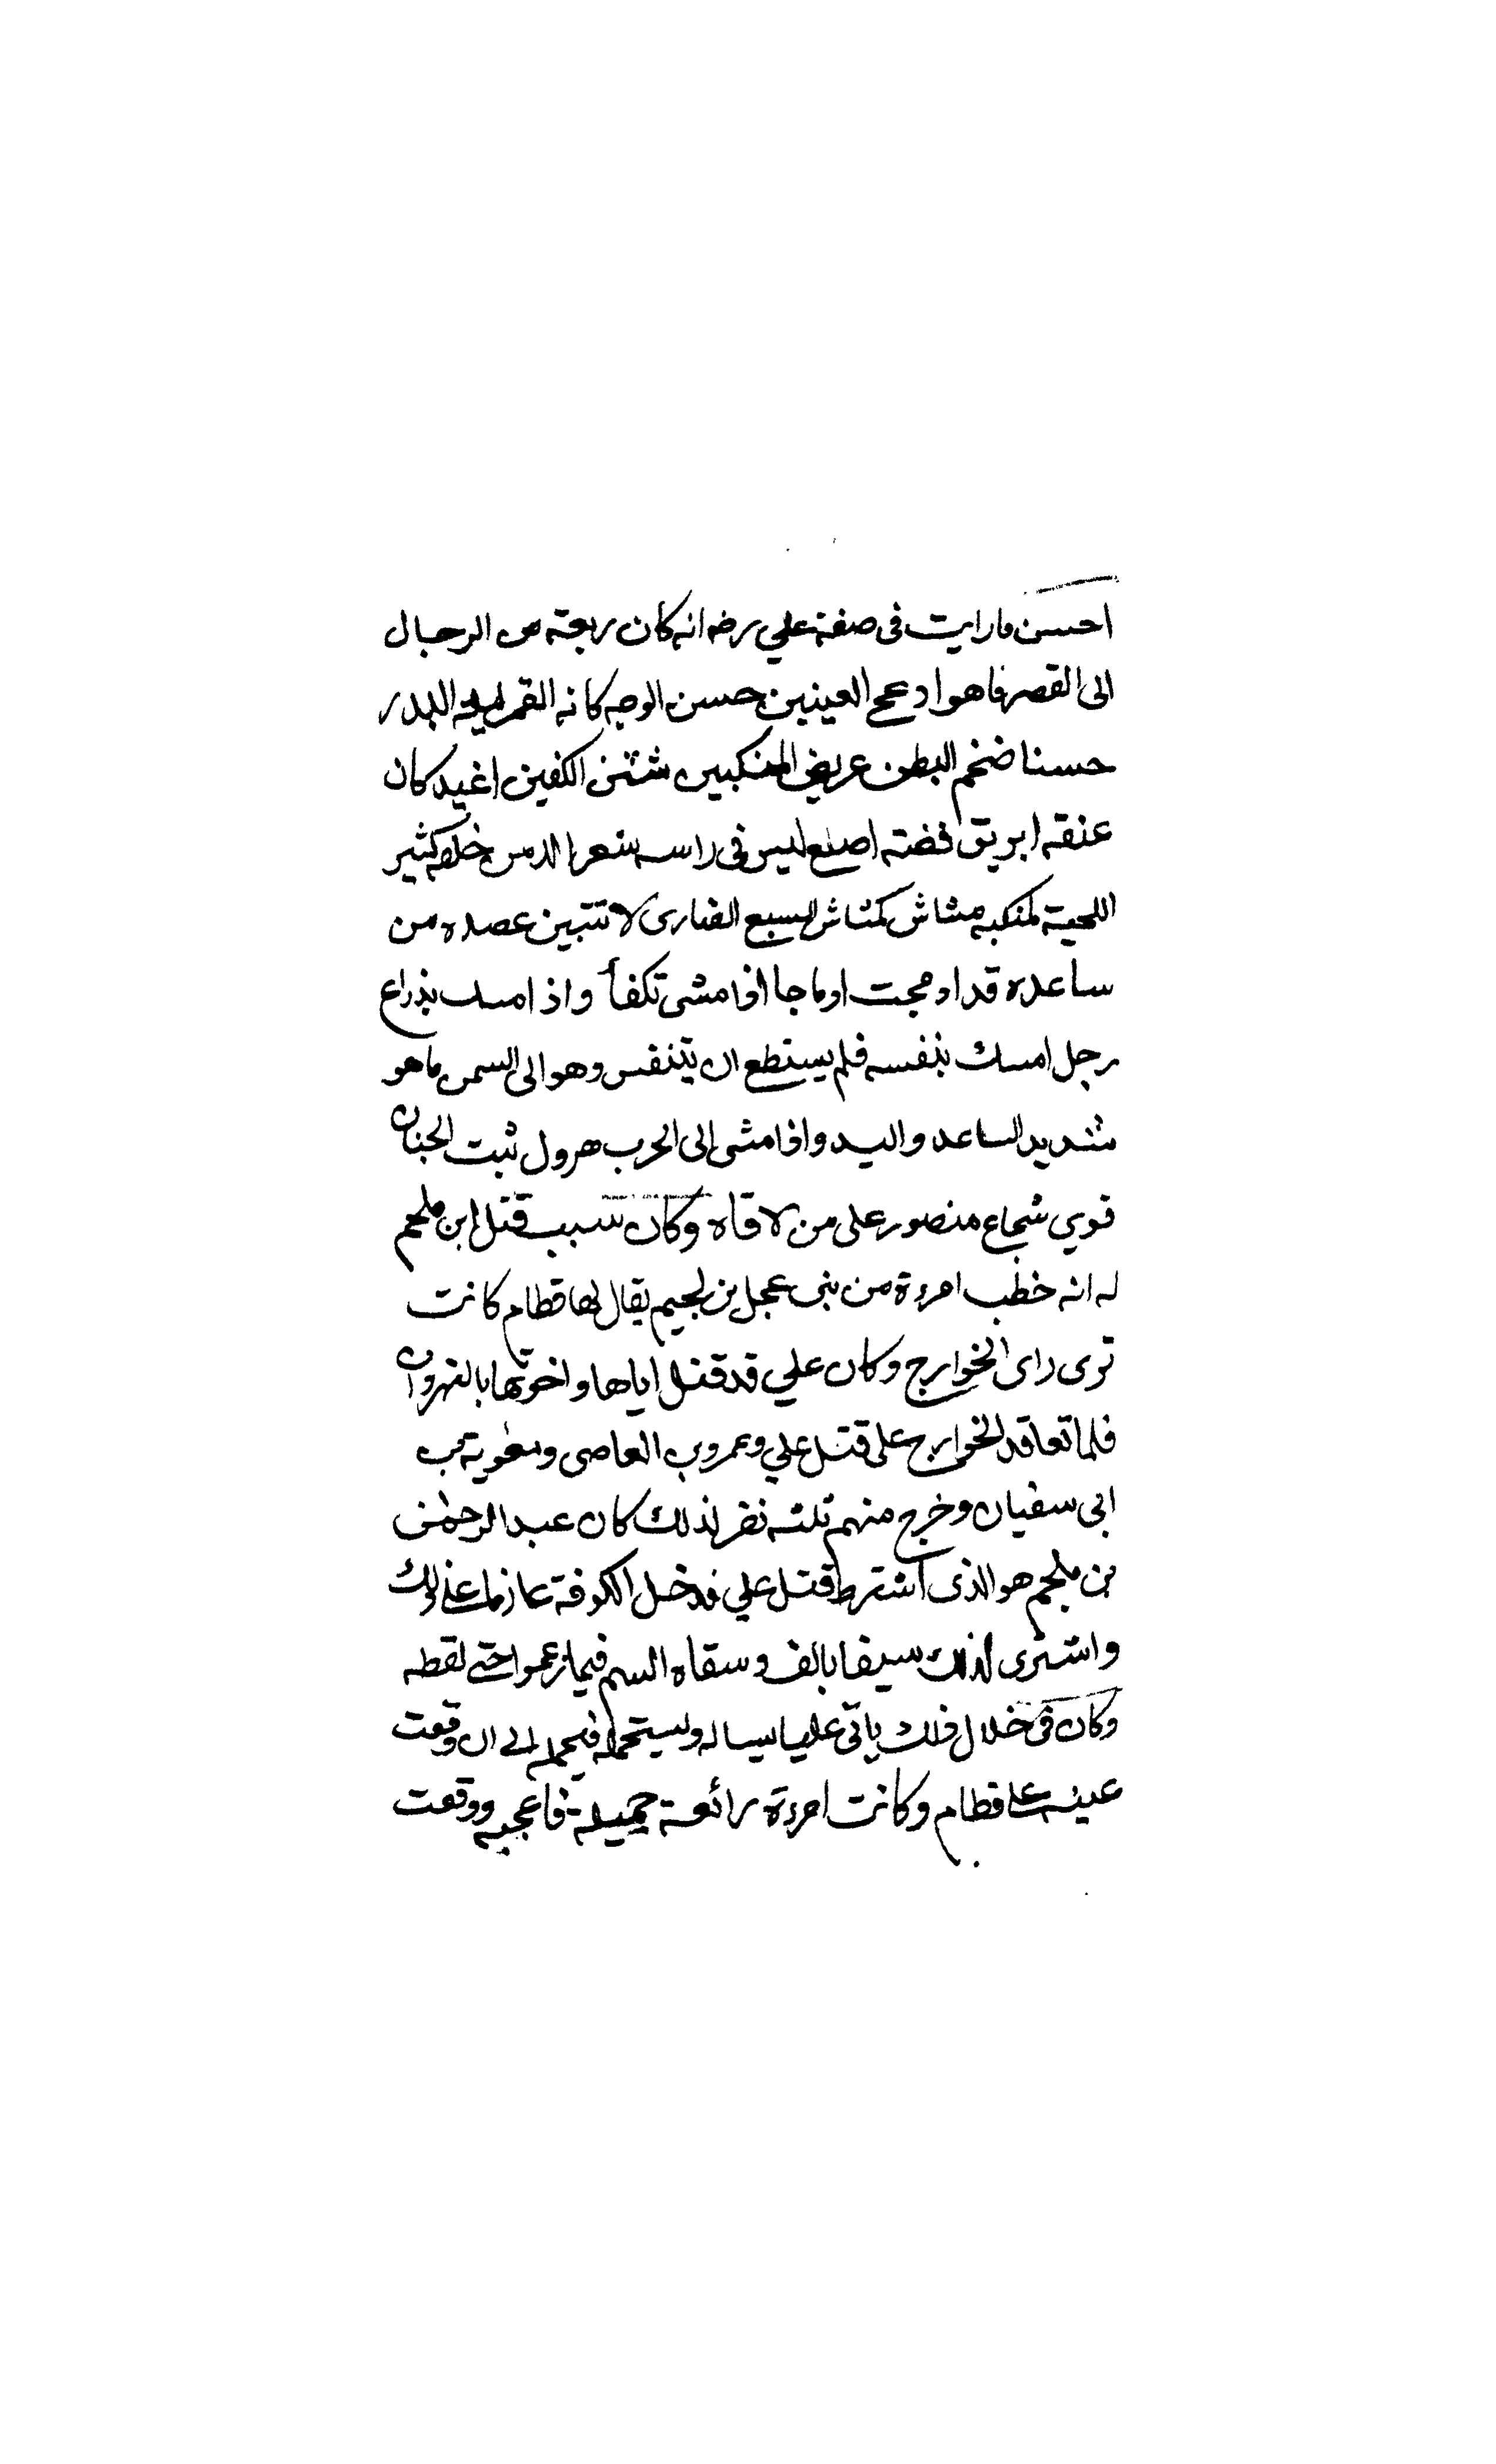 احسن ما رايت فى صفة علي رضه انه كان ربعة من الرجال
الى القصر ما هو ادعج العينين حسن الوجه كانه القمر ليلة البدر
حسنا ضخم البطن عريض المنكبين شثن الكفين اغيد كان
عنقه ابريق فضة اصلع ليس فى راسه شعر الا من خلفه كثير
اللحية لمنكبه مشاش كمشاش السبع الضارى لا تتبين عضده من
ساعده قد ادمجت ادماجا اذا مشى تكفأ واذا امسك بذراع
رجل امسك بنفسه فلم يستطع ان يتنفس وهو الى السمن ما هو
شديد الساعد واليد واذا مشى الى الحرب هرول ثبت الجنان
قوي شجاع منصور على من لاقاه وكان سبب قتل ابن ملجم
له انه خطب امرءة من بنى عجل بن لجيم يقال لها قطام كانت
ترى راى الخوارج وكان علي قد قتل اباها واخوتها بالنهروان
فلما تعاقد الخوارج على قتل علي وعمرو بن العاصى ومعوية بن
ابى سفيان وخرج منهم ثلثه نفر لذلك كان عبد الرحمن
بن ملجم هو الذى اشترط قتل علي فدخل الكوفة عازما على ذلك
واشترى لذلك سيفا بالف وسقاه السم فيما زعموا حتى لفظه
وكان فى خلال ذلك ياتى عليا يساله ويستحمله فيحمله الى ان وقعت
عينه على قطام وكانت امرءة رائعة جميلة فاعجبته ووقعت